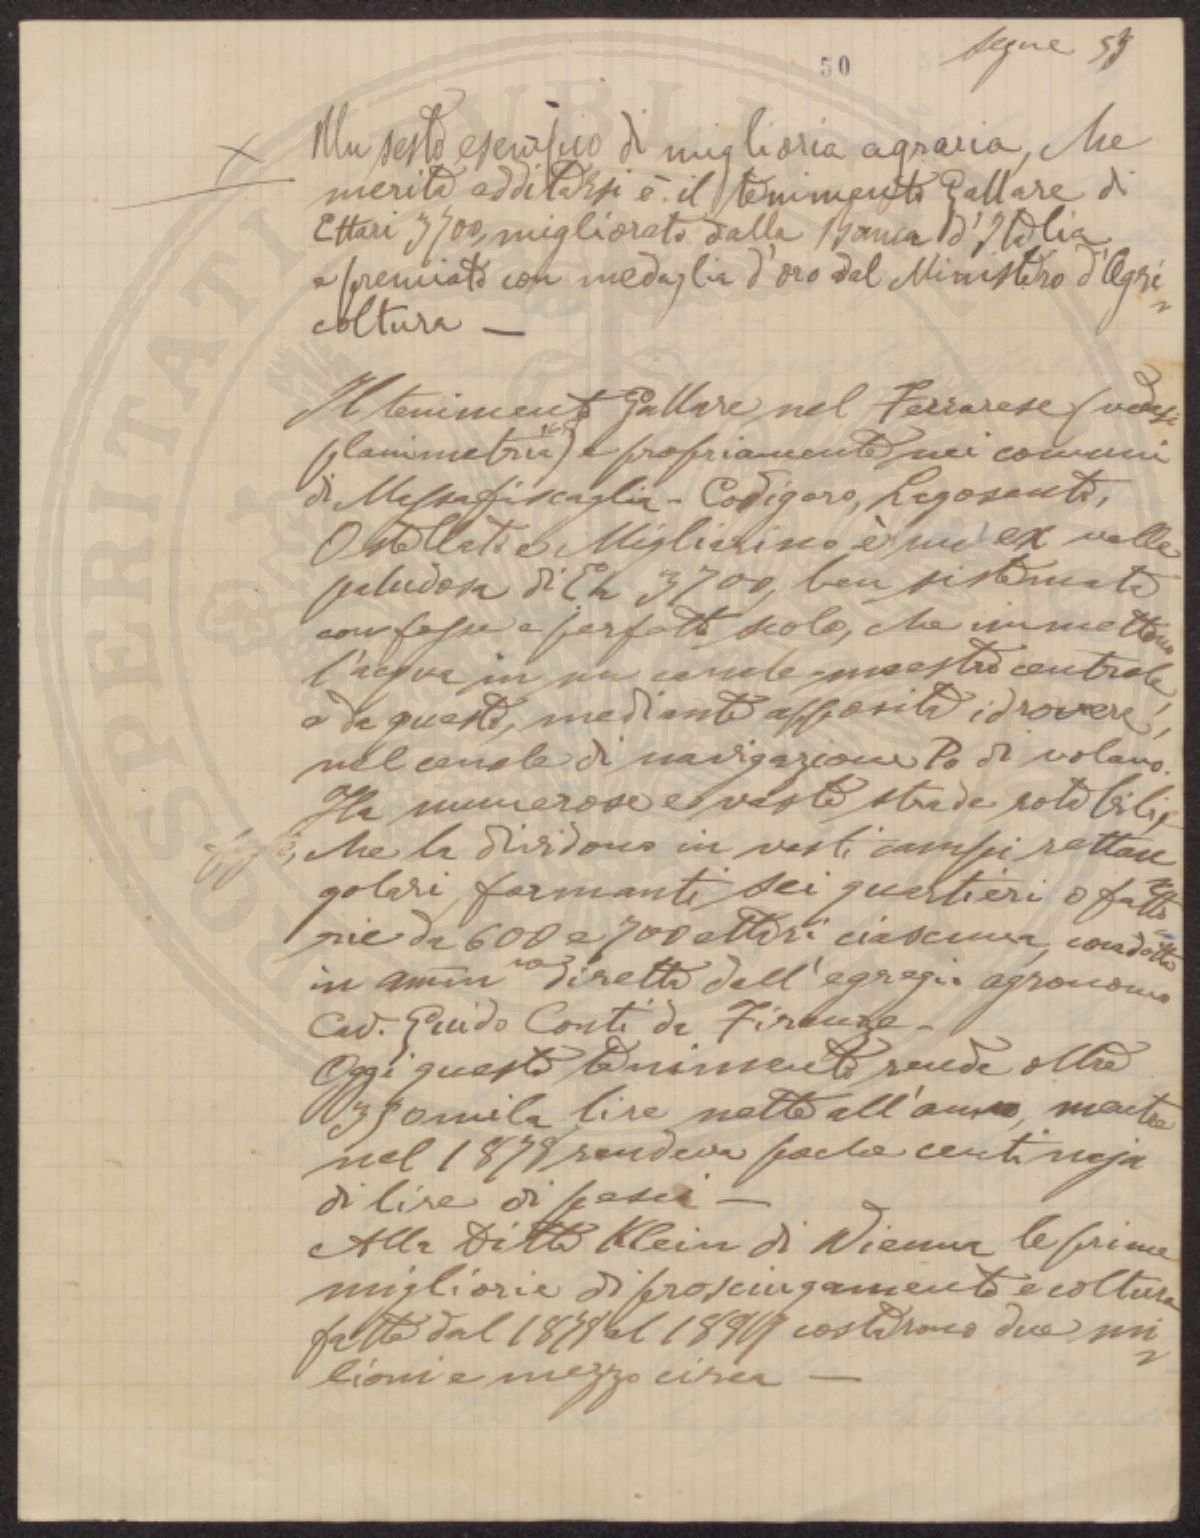 segue 53
50
Un sesto esempio di miglioria agraria, che
merita additarsi è il tenimento Gallare di
Ettari 3700, migliorato dalla Banca d'Italia
e premiato con medaglia d'oro dal Ministero d'Agri
coltura —
Il tenimento Gallare nel Ferrarese (vedasi
planimetria) e propriamente nei comuni
di Massafiscaglia - Codigoro, Lagosanto,
Ostellato e Migliarino è un ex valle
paludosa di Ea 3700, ben sistemata
con fosse a perfetto scolo, che immettono
l'acqua in un canale maestro centrale,
e da questo, mediante apposite idrovere,
nel canale di navigazione Po di volano.
Ha numerose e vaste strade rotabili,
che la dividono in vasti campi rettan
golari formanti sei quartieri o fatto
rie da 600 a 700 ettari ciascuna, condotte
in amm.ne diretta dall'egregio agronomo
Cav. Guido Conti da Firenze -
Oggi questo tenimento rende oltre
350 mila lire nette all'anno, mentre
nel 1878 rendeva poche centinaja
di lire di pesci —
Alla Ditta Klein di Vienna le prime
migliorie di prosciugamento e coltura
fatte dal 1878 al costarono due mi
lioni e mezzo circa —
PROSPERITATI PUBLICAE